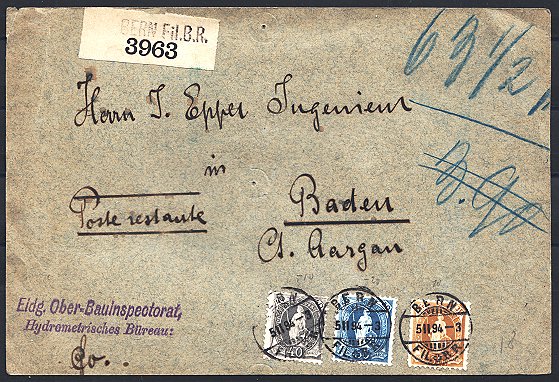 BERN Fil.B.R.
3963
63 1/2
Herrn J. Epper Ingenieur
in
Poste restante
Baden
Ct. Aargau
Eidg. Ober-Bauinspectorat,
Hydrometrisches Büreau:
Co..
BERN
5 II 94 - 3
FIL.B.R.
40
BERN
5 II 94 -
BERN